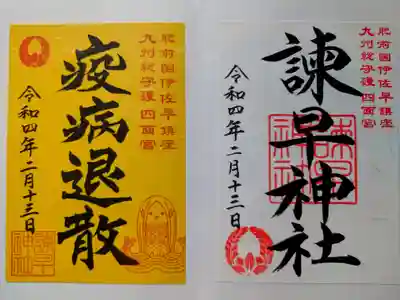 肥前国伊佐早鎮座
九州総守護四面宮
疫病退散
令和四年二月十三日
諫早神社
肥前国伊佐早鎮座
九州総守護四面宮
諫早神社
令和四年二月十三日
諫早神社